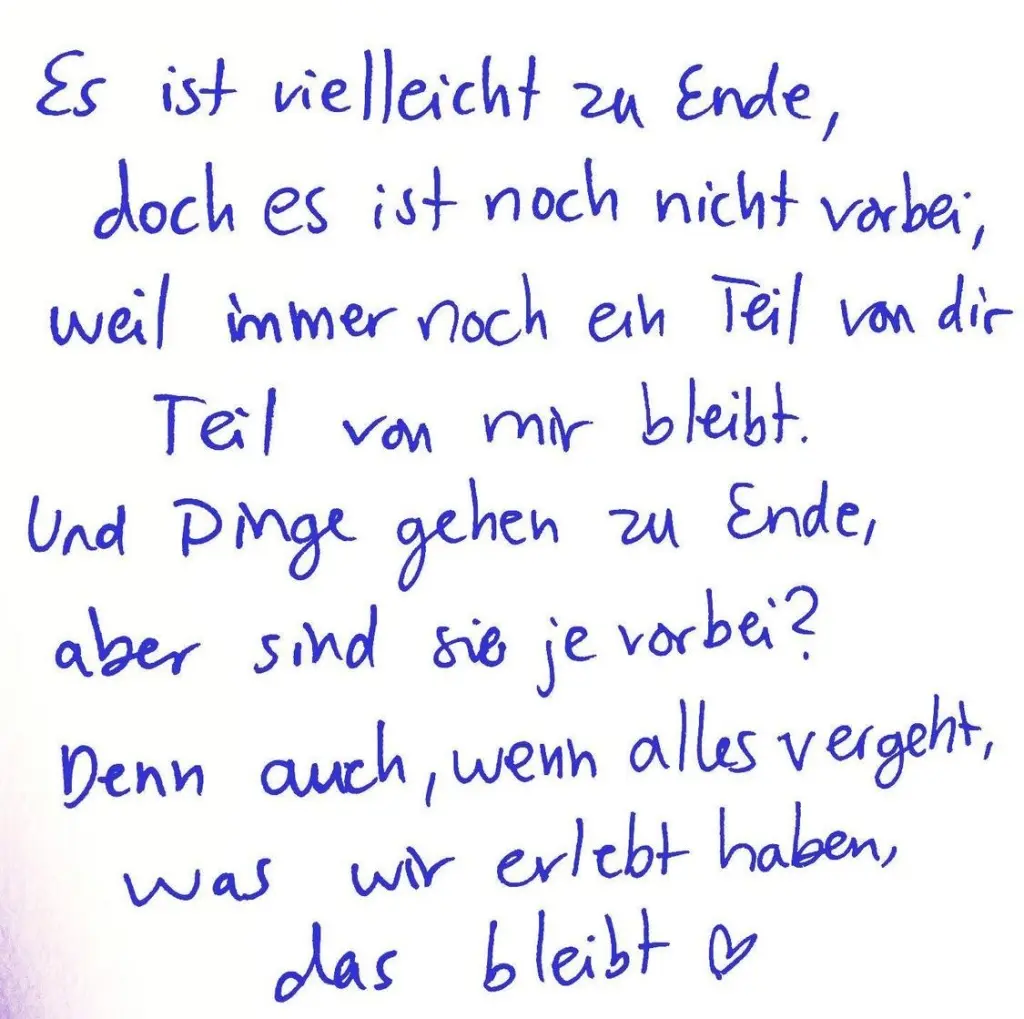 Es ist vielleicht zu Ende,
doch es ist noch nicht vorbei,
weil immer noch ein Teil von dir
Teil von mir bleibt.
Und Dinge gehen zu Ende,
aber sind sie je vorbei?
Denn auch, wenn alles vergeht,
was wir erlebt haben,
das bleibt ♡